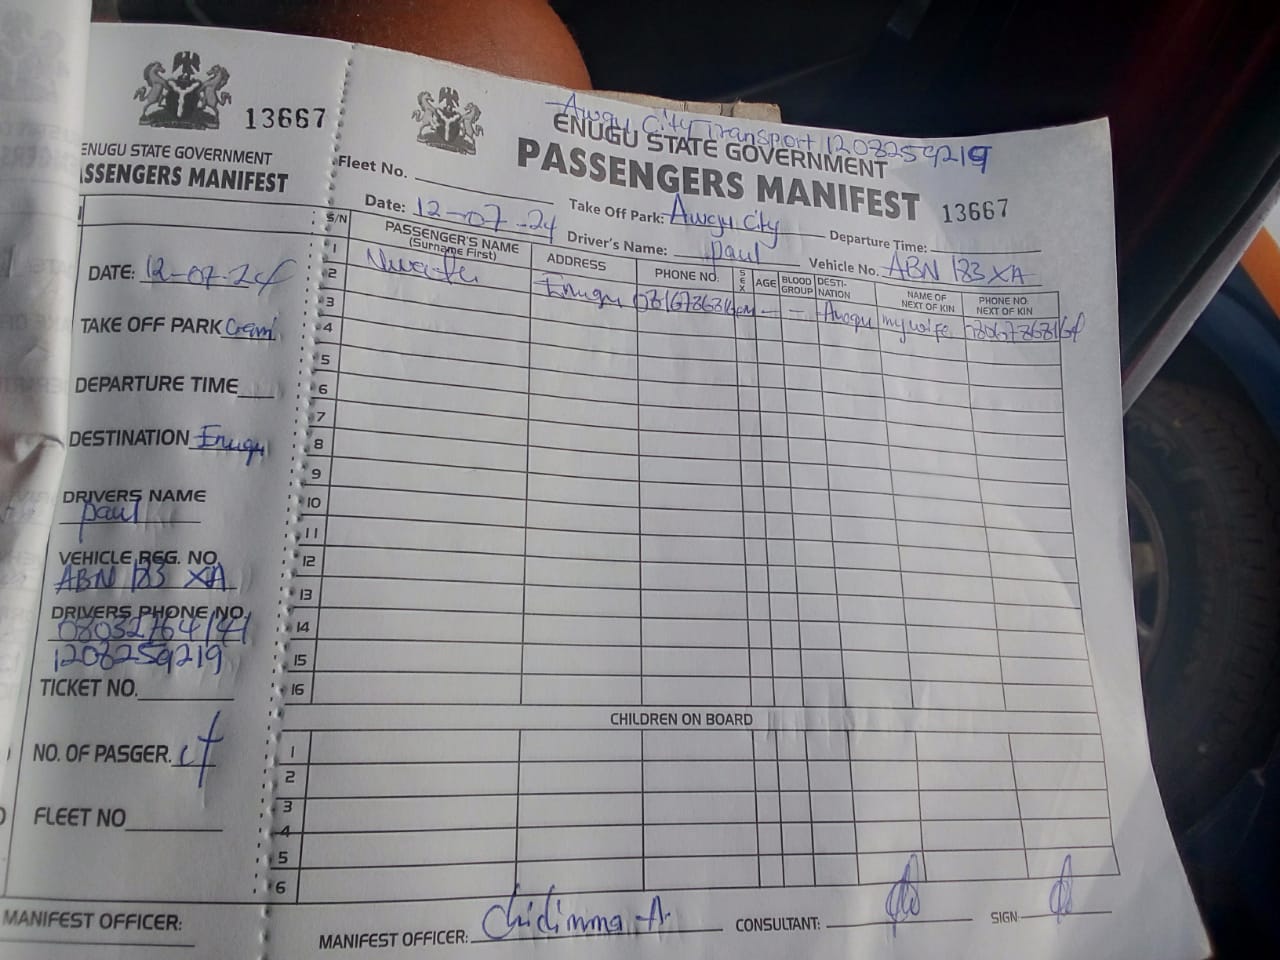 13667
ENUGU STATE GOVERNMENT
PASSENGERS MANIFEST
DATE: 12-07-24
TAKE OFF PARK
DEPARTURE TIME
DESTINATION Enugu
DRIVERS NAME
paul
VEHICLE REG. NO.
ABN 183 XA
DRIVERS PHONE NO.
1208259219
TICKET NO.
NO. OF PASGER.
FLEET NO
MANIFEST OFFICER:
Awgu City Transport 1208259219
ENUGU STATE GOVERNMENT
PASSENGERS MANIFEST 13667
Fleet No.
Date: 12-07-24 Take Off Park: Awgu City Departure Time:
Driver's Name: paul Vehicle No. ABN 183 XA
S/N PASSENGER'S NAME (Surname First) ADDRESS PHONE NO. SEX AGE BLOOD GROUP DESTI-NATION NAME OF NEXT OF KIN PHONE NO. NEXT OF KIN
1 Enugu Awgu my wife
2
3
4
5
6
7
8
9
10
11
12
13
14
15
16
CHILDREN ON BOARD
1
2
3
4
5
6
MANIFEST OFFICER: Chidimma A. CONSULTANT: SIGN: